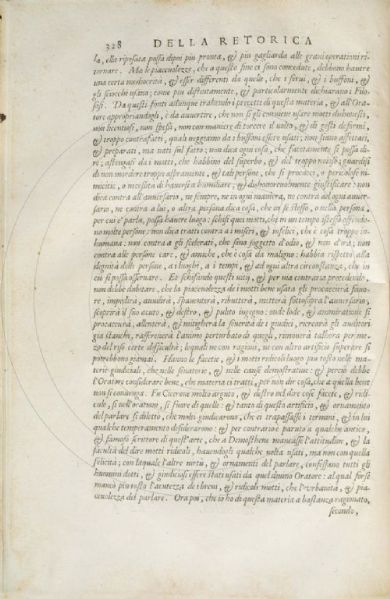 328 DELLA RETORICA
la, ella riposata possa dipoi più pronta, & più gagliarda alle grandi operationi ri-
tornare. Ma le piaceuolezze, che a questo fine ci sono concedute, debbono hauere
una certa mediocrità, & esser differenti da quelle, che i serui, & i buffoni, &
gli sciocchi usano; come più distesamente, & particolarmente dichiarano i Filo-
sofi. Da questi fonti adunque trahendo i precetti di questa materia, & all'Ora-
tore appropriandogli, è da auuertire, che non si gli conuiene usare motti dishonesti,
non licentiosi, non spessi, non con maniere di torcere il uolto, & di gesti deformi,
& troppo contrafatti, quali ueggiamo da i buffoni essere usati; non sieno affettati,
& preparati, ma nati sul fatto; non dica ogni cosa, che facetamente si possa di-
re; astengasi da i motti, che habbino del superbo, & del troppo rozo; guardisi
di non mordere troppo aspramente, & tali persone, che si procacci, o pericolose ni-
micitie, o necessità di hauersi a humiliare; & dishonoreuolmente giustificare: non
dica contra all'auuersario, ne sempre, ne in ogni maniera, ne contra ad ogni auuer-
sario, ne contra a lui, o altra persona dica cosa, che in se stesso, o nella persona,
per cui e' parla, possa hauere luogo: schifi quei motti, che in un tempo stesso offendi-
no molte persone: non dica tratti contra a i miseri, & infelici, che è cosa troppo in-
humana: non contra a gli scelerati, che sono soggetto d'odio, & non d'ira; non
contra alle persone care, & amiche, che è cosa da maligno: habbia rispetto alla
dignità delle persone, a i luoghi, a i tempi, & ad ogni altra circonstanza, che in
ciò si possa osseruare. Et schifando questi uitij, & per uia contraria procedendo,
non debbe dubitare, che la piaceuolezza de i motti bene usata gli procaccerà fauo-
re, impedirà, auuilirà, spauenterà, ributterà, metterà sottosopra l'auuersario;
scoprirà il suo acuto, & destro, & pulito ingegno: onde lode, & ammiratione si
procaccerà, allenterà, & mitigherà la seuerità de i giudici, recreerà gli auditori
gia stanchi, rasserenerà l'animo perturbato di quegli, rimouerà talhora per mez-
zo del riso certe difficultà; le quali ne con ragioni, ne con altro artificio superare si
potrebbono giamai. Hanno le facetie, & i motti ridicoli luogo piu tosto nelle ma-
terie giudiciali, che nelle senatorie, & nelle cause demostratiue: & perciò debbe
l'Oratore considerare bene, che materia ei tratti, per non dir cosa, che a quella bene
non si conuenga. Fu Cicerone molto arguto, & illustre nel dare cosè facete, & ridi-
cule, sì nell'orationi, sì fuore di quelle: & tanto di questo artificio, & ornamento
del parlare si dilettò, che molti giudicarono, che ei trapassasse i termini, & in lui
qualche temperamento desiderarono: & per contrario è paruto a qualche antico,
& famoso scrittore di quest'arte, che a Demosthene mancasse l'attitudine, & la
facultà del dare motti ridicoli, hauendogli qualche uolta usati, ma non con quella
felicità; con la quale l'altre uirtù, & ornamenti del parlare, confessano tutti gli
huomini dotti, & giudiciosi essere stati usati da quel diuino Oratore: al qual forse
mancò più tosto l'acutezza de i breui, & ridicoli motti, che l'urbanità, & pia-
ceuolezza del parlare. Ora poi, che io ho di questa materia a bastanza ragionato,
secondo,